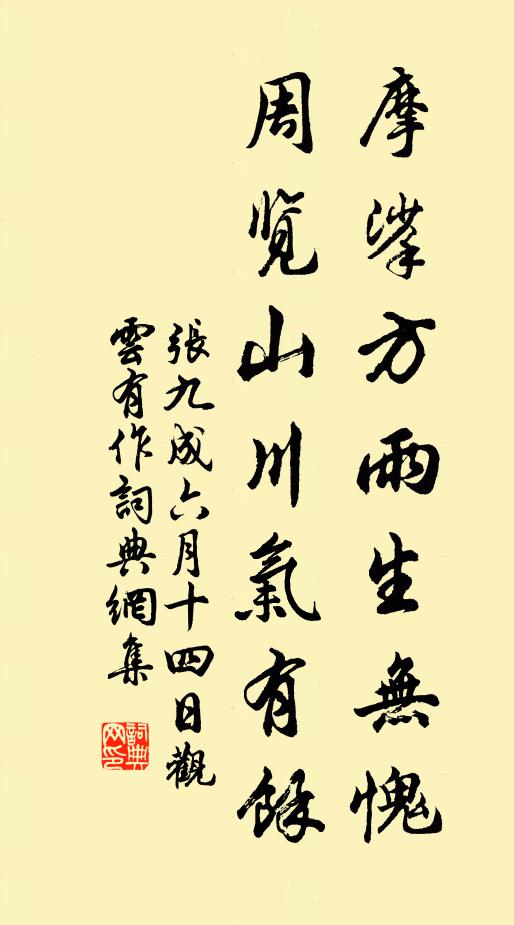 摩挲方兩生無愧
周覽山川氣有餘
張九成六月十四日觀
雲有作詞典網集
詞典
网印